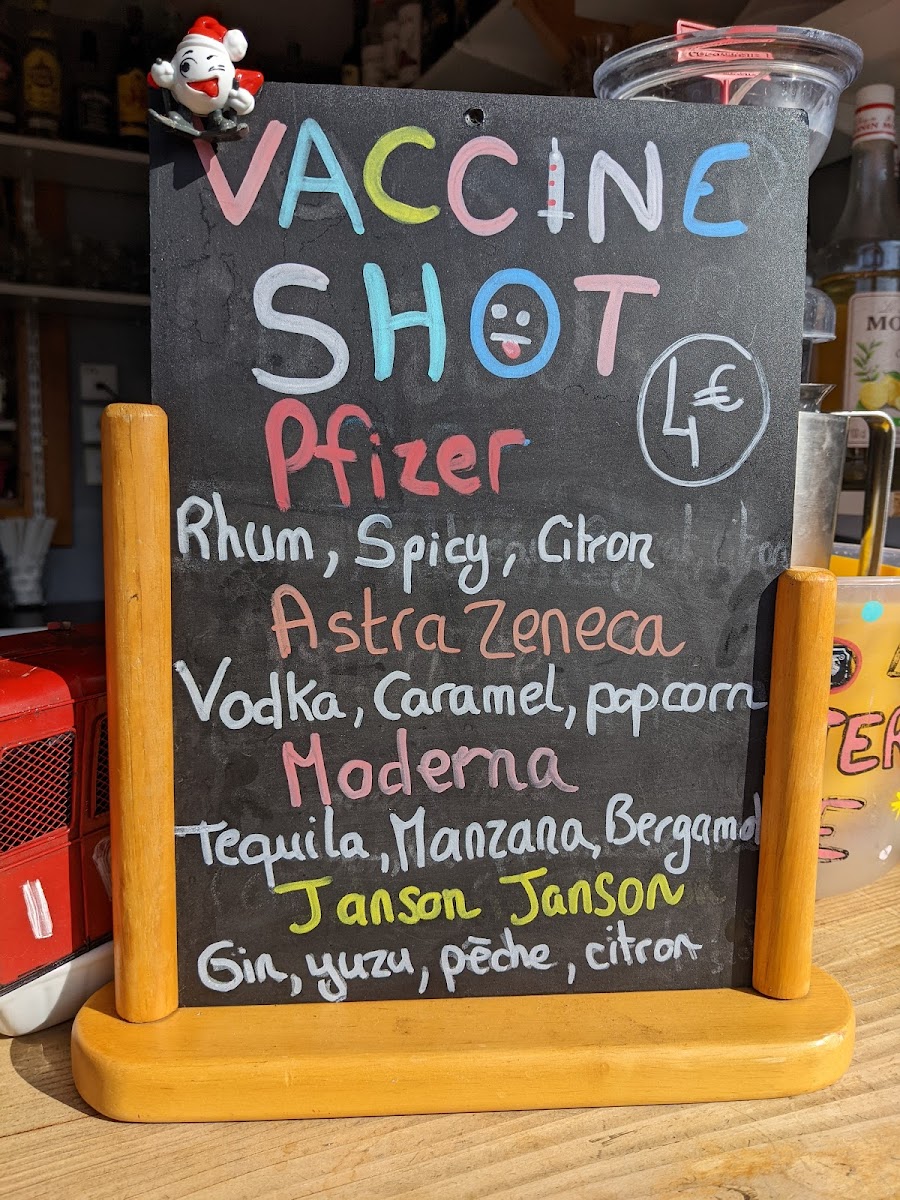 VACCINE
SHOT
4€
Pfizer
Rhum, Spicy, Citron
Astra Zeneca
Vodka, Caramel, popcorn
Moderna
Tequila, Manzana, Bergamot
Janson Janson
Gin, yuzu, pêche, citron
MO
TER
E